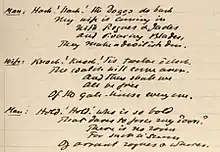 Man: Hark! Hark! the Dogs do bark
My wife is coming in
With Rogues & Jades
and roaring blades,
They make a devilish din.
Wife: Knock! Knock! 'Tis twelve o'clock,
The Watch will come anon.
And then shall we
All be free
Of the Gate-house every one.
Man: Hold! Hold! who is so bold
That dares to force my doors?
There is no room
For such a
Of arrant rogues & whores.